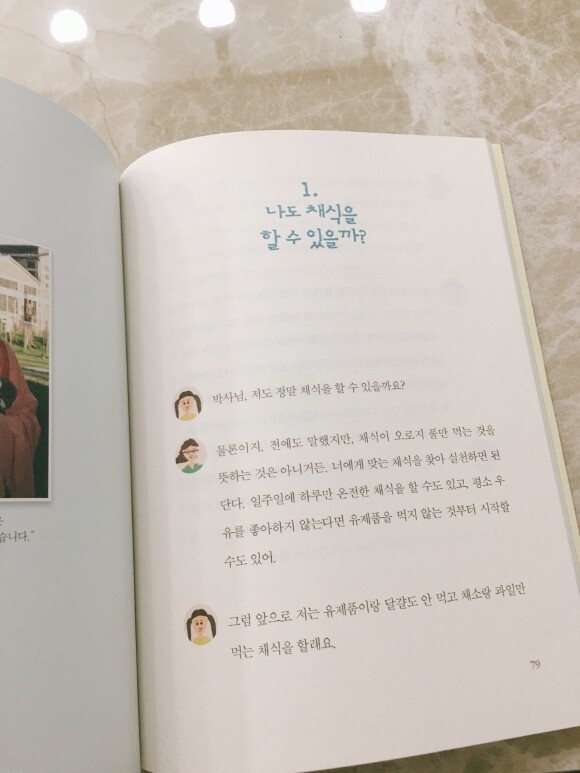 습니다."
1.
나도 채식을
할 수 있을까?
박사님, 저도 정말 채식을 할 수 있을까요?
물론이지. 전에도 말했지만, 채식이 오로지 풀만 먹는 것을
뜻하는 것은 아니거든. 너에게 맞는 채식을 찾아 실천하면 된
단다. 일주일에 하루만 온전한 채식을 할 수도 있고, 평소 우
유를 좋아하지 않는다면 유제품을 먹지 않는 것부터 시작할
수도 있어.
그럼 앞으로 저는 유제품이랑 달걀도 안 먹고 채소랑 과일만
먹는 채식을 할래요.
79